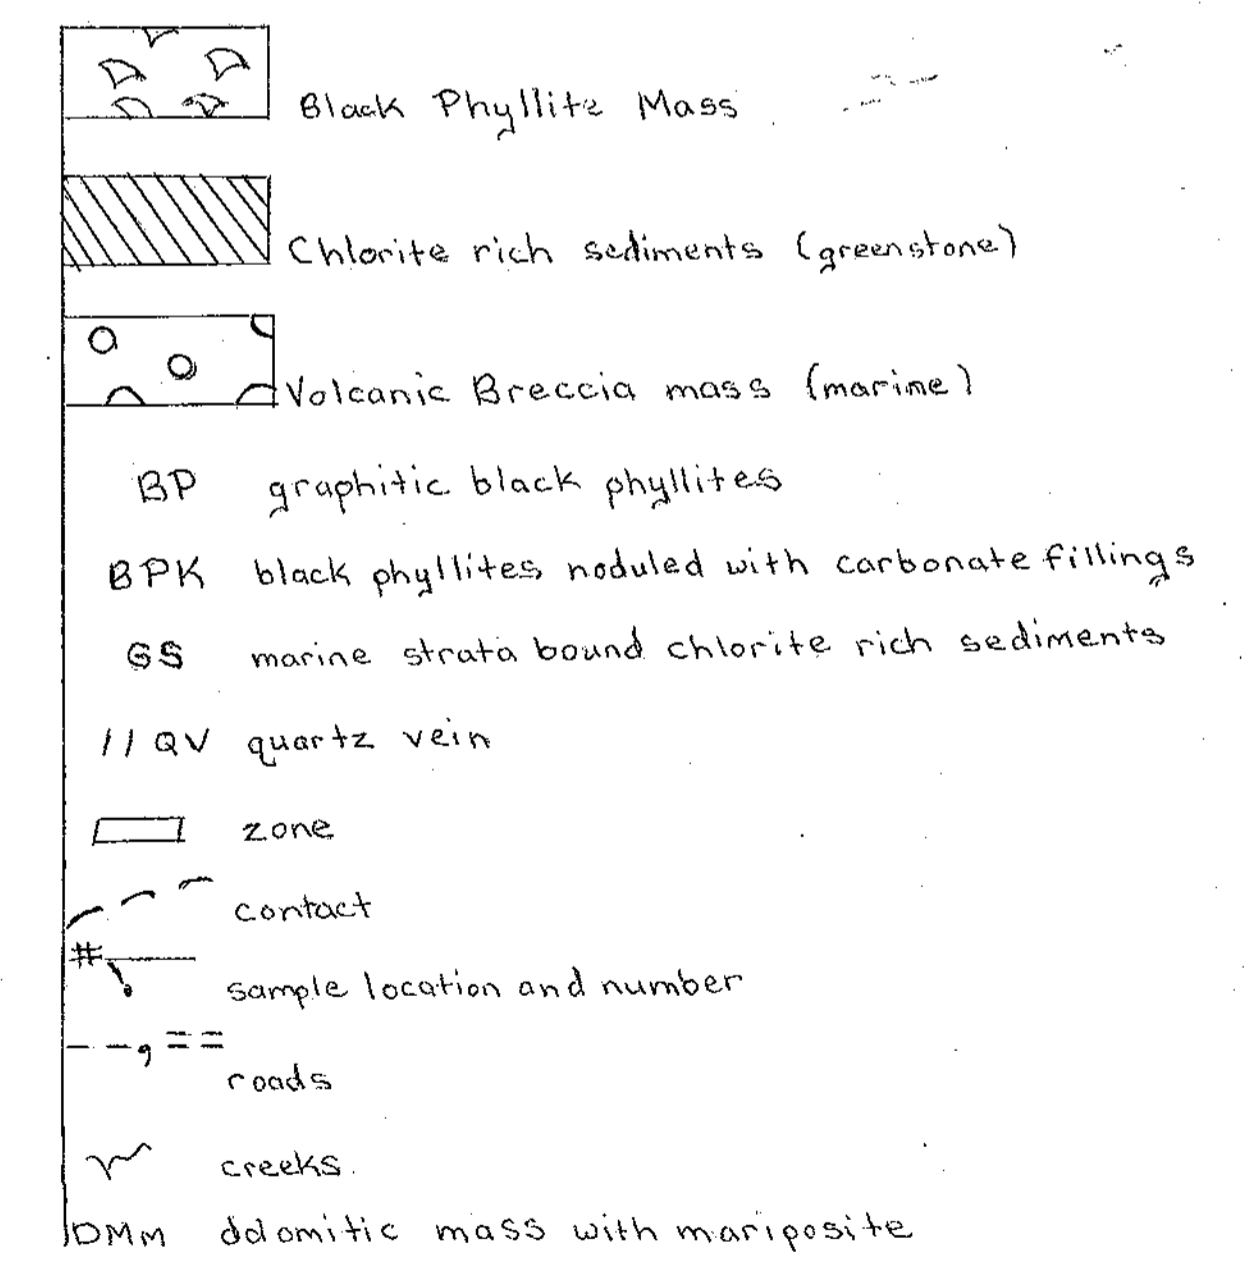 Black Phyllite Mass
Chlorite rich sediments (greenstone)
Volcanic Breccia mass (marine)
BP graphitic black phyllites
BPK black phyllites noduled with carbonate fillings
GS marine strata bound chlorite rich sediments
// QV quartz vein
zone
contact
#
sample location and number
roads
creeks.
DMm dolomitic mass with mariposite